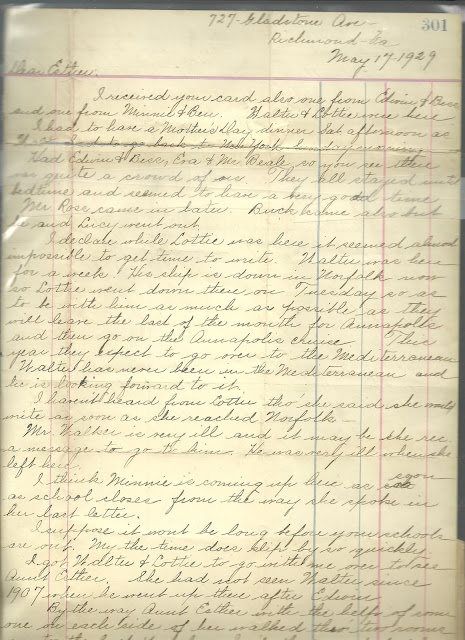 727-Gladstone Ave-
301
Richmond-Va
May 17-1929
Dear Esther:
I received your card also one from Edwin & Bess
and one from Minnie & Ben. Walter & Lottie were here
I had to have a Mothers Day dinner Sat afternoon as
had to go back to New York Sunday morning
Had Edwin & Bess, Eva & Mr Beale, so you see there
was quite a crowd of us. They all stayed until
bedtime and seemed to have a very good time
Mr Rose came in later. Buck home also but
he and Lucy went out.
I declare while Lottie was here it seemed almost
impossible to get time to write. Walter was here
for a week. His ship is down in Norfolk now
so Lottie went down there on Tuesday so as
to be with him as much as possible as they
will leave the last of the month for Annapolis
and then go on the Annapolis cruise. This
year they expect to go over to the Mediterranean
Walter has never been in the Mediterranean and
he is looking forward to it.
I havent heard from Lottie tho' she said she would
write as soon as she reached Norfolk-
Mr. Walker is very ill and it may be she rec
a message to go to him. He was very ill when she
left here.
I think Minnie is coming up here as soon
as school closes from the way she spoke in
her last letter.
I suppose it wont be long before your schools
are out. My the time does slip by so quickly.
I got Walter & Lottie to go with me over to see
Aunt Esther. She had not seen Walter since
1907 when he went up there after Edwin
By the way Aunt Esther with the help of some
one on each side of her walked thru two rooms